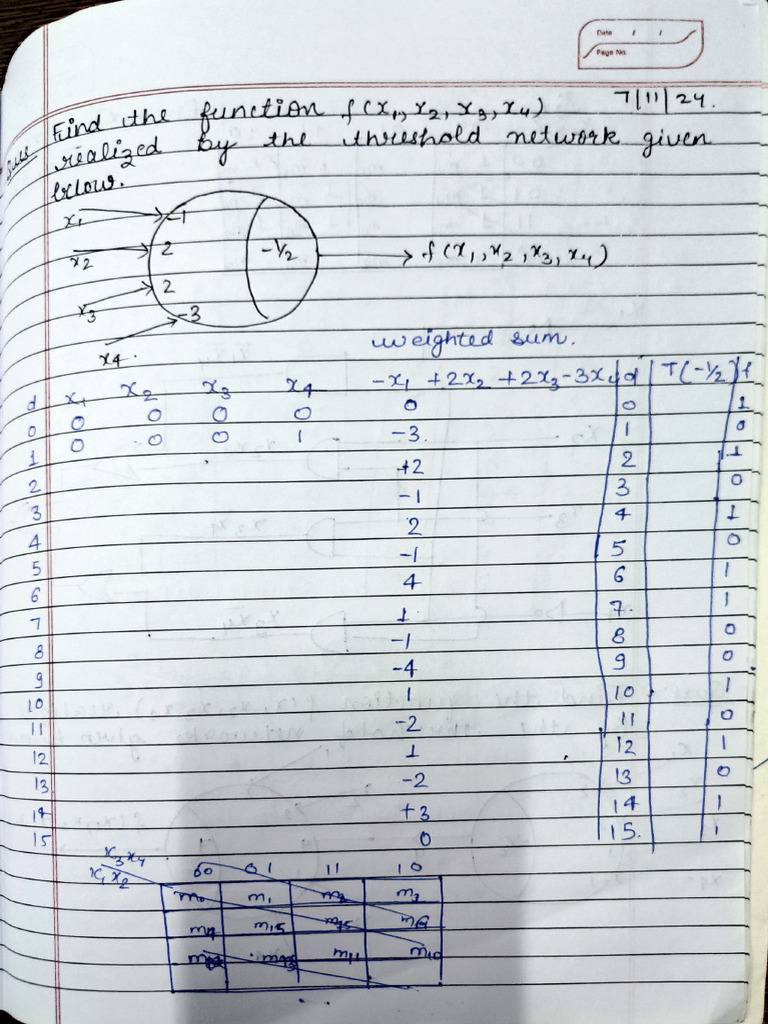 Date / /
Page No.
7/11/24.
Sum Find the function f(x₁, x₂, x₃, x₄)
realized by the threshold network given
below.
x₁ -1
x₂ 2 -½ f(x₁, x₂, x₃, x₄)
x₃ 2
x₄. -3
weighted sum.
d x₁ x₂ x₃ x₄ -x₁ +2x₂ +2x₃-3x₄ d T(-½) f
0 0 0 0 0 0 0 1
1 0 0 0 1 -3. 1 0
2 +2 2 1
3 -1 3 0
4 2 4 1
5 -1 5 0
6 4 6 1
7 1 7. 1
8 -1 8 0
9 -4 9 0
10 1 10 1
11 -2 11 0
12 1 12 1
13 -2 13 0
14 +3 14 1
15 0 15. 1
x₃x₄
x₁x₂ 00 01 11 10
m₀ m₁ m₂ m₃
m₄ m₁₅
m₁₁ m₁₀